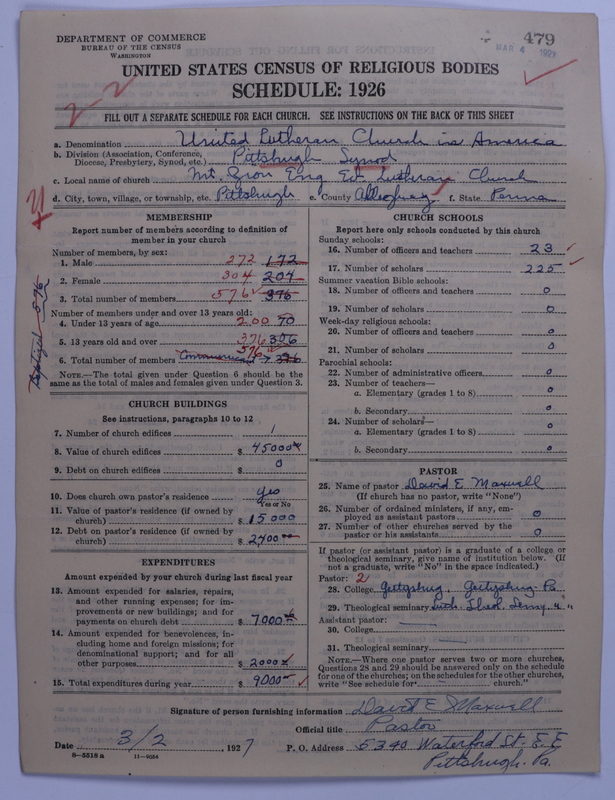 DEPARTMENT OF COMMERCE
BUREAU OF THE CENSUS
WASHINGTON
479
MAR 4 1927
UNITED STATES CENSUS OF RELIGIOUS BODIES
SCHEDULE: 1926
2-2
FILL OUT A SEPARATE SCHEDULE FOR EACH CHURCH. SEE INSTRUCTIONS ON THE BACK OF THIS SHEET
a. Denomination United Lutheran Church in America
b. Division (Association, Conference, Diocese, Presbytery, Synod, etc.) Pittsburgh Synod
c. Local name of church Mt. Zion Eng Ev. Lutheran Church
d. City, town, village, or township, etc. Pittsburgh e. County Allegheny f. State Penna
MEMBERSHIP
Report number of members according to definition of member in your church
Number of members, by sex:
1. Male 272 172
2. Female 304 204
3. Total number of members 576 376
Number of members under and over 13 years old:
4. Under 13 years of age 200 70
5. 13 years old and over 376 306
6. Total number of members Communicant 576 376
NOTE.—The total given under Question 6 should be the same as the total of males and females given under Question 3.
Baptized 576
CHURCH BUILDINGS
See instructions, paragraphs 10 to 12
7. Number of church edifices 1
8. Value of church edifices $ 45000
9. Debt on church edifices $ 0
10. Does church own pastor's residence yes
Yes or No
11. Value of pastor's residence (if owned by church) $ 15000
12. Debt on pastor's residence (if owned by church) $ 2400
EXPENDITURES
Amount expended by your church during last fiscal year
13. Amount expended for salaries, repairs, and other running expenses; for improvements or new buildings; and for payments on church debt $ 7000
14. Amount expended for benevolences, including home and foreign missions; for denominational support; and for all other purposes $ 2000
15. Total expenditures during year $ 9000
CHURCH SCHOOLS
Report here only schools conducted by this church
Sunday schools:
16. Number of officers and teachers 23
17. Number of scholars 225
Summer vacation Bible schools:
18. Number of officers and teachers 0
19. Number of scholars 0
Week-day religious schools:
20. Number of officers and teachers 0
21. Number of scholars 0
Parochial schools:
22. Number of administrative officers 0
23. Number of teachers—
a. Elementary (grades 1 to 8) 0
b. Secondary 0
24. Number of scholars—
a. Elementary (grades 1 to 8) 0
b. Secondary 0
PASTOR
25. Name of pastor David E. Maxwell
(If church has no pastor, write "None")
26. Number of ordained ministers, if any, employed as assistant pastors 0
27. Number of other churches served by the pastor or his assistants 0
If pastor (or assistant pastor) is a graduate of a college or theological seminary, give name of institution below. (If not a graduate, write "No" in the space indicated.)
Pastor: 2
28. College Gettysburg - Gettysburg Pa
29. Theological seminary Luth. Theol. Semy. " "
Assistant pastor:
30. College
31. Theological seminary
NOTE.—Where one pastor serves two or more churches, Questions 28 and 29 should be answered only on the schedule for one of the churches; on the schedules for the other churches, write "See schedule for church."
Signature of person furnishing information David E Maxwell
Official title Pastor
Date 3/2 1927 P. O. Address 5340 Waterford St. S. E
Pittsburgh. Pa.
8-5518 a 11-9054